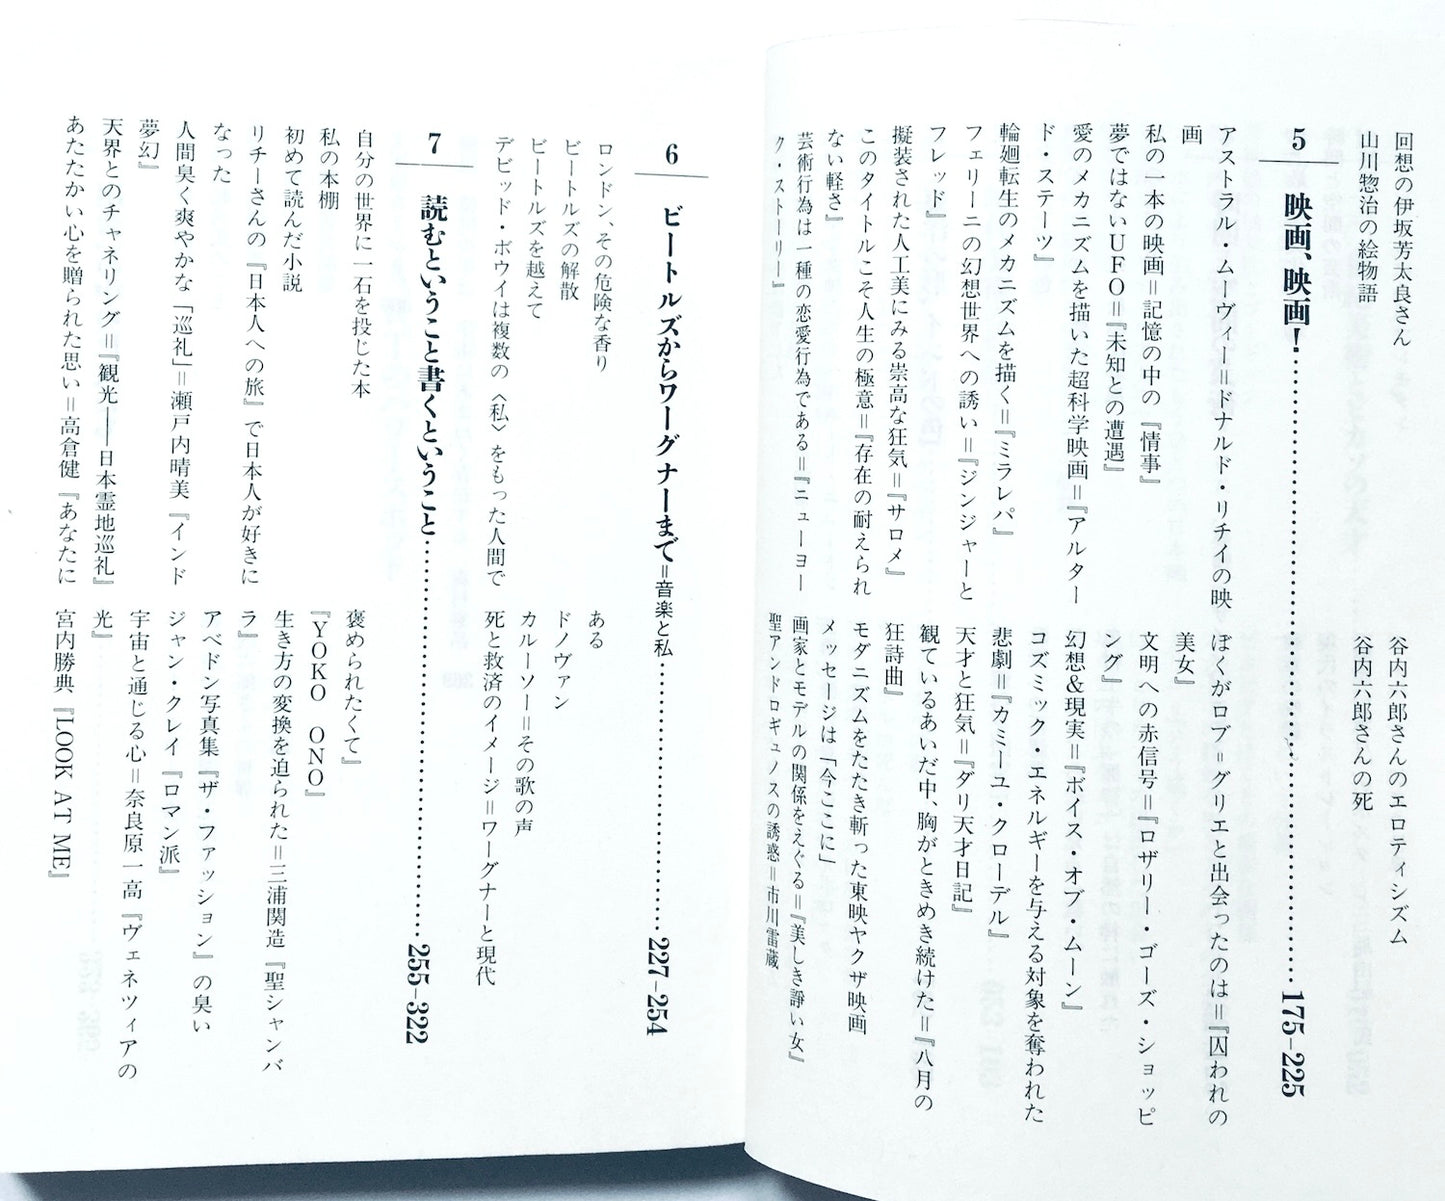 回想の伊坂芳太良さん
山川惣治の絵物語
谷内六郎さんのエロティシズム
谷内六郎さんの死
5 映画、映画！ 175-225
アストラル・ムーヴィー＝ドナルド・リチイの映
画
私の一本の映画＝記憶の中の『情事』
夢ではないUFO＝『未知との遭遇』
愛のメカニズムを描いた超科学映画＝『アルター
ド・ステーツ』
輪廻転生のメカニズムを描く＝『ミラレパ』
フェリーニの幻想世界への誘い＝『ジンジャーと
フレッド』
擬装された人工美にみる崇高な狂気＝『サロメ』
このタイトルこそ人生の極意＝『存在の耐えられ
ない軽さ』
芸術行為は一種の恋愛行為である＝『ニューヨー
ク・ストーリー』
ぼくがロブ＝グリエと出会ったのは＝『囚われの
美女』
文明への赤信号＝『ロザリー・ゴーズ・ショッピ
ング』
幻想&現実＝『ボイス・オブ・ムーン』
コズミック・エネルギーを与える対象を奪われた
悲劇＝『カミーユ・クローデル』
天才と狂気＝『ダリ天才日記』
観ているあいだ中、胸がときめき続けた＝『八月の
狂詩曲』
モダニズムをたたき斬った東映ヤクザ映画
メッセージは「今ここに」
画家とモデルの関係をえぐる＝『美しき諍い女』
聖アンドロギュノスの誘惑＝市川雷蔵
6 ビートルズからワーグナーまで＝音楽と私 227-254
ロンドン、その危険な香り
ビートルズの解散
ビートルズを越えて
デビッド・ボウイは複数の〈私〉をもった人間で
ある
ドノヴァン
カルーソー＝その歌の声
死と救済のイメージ＝ワーグナーと現代
7 読むということ書くということ 255-322
自分の世界に一石を投じた本
私の本棚
初めて読んだ小説
リチーさんの『日本人への旅』で日本人が好きに
なった
人間臭く爽やかな「巡礼」＝瀬戸内晴美『インド
夢幻』
天界とのチャネリング＝『観光――日本霊地巡礼』
あたたかい心を贈られた思い＝高倉健『あなたに
褒められたくて』
『YOKO ONO』
生き方の変換を迫られた＝三浦関造『聖シャンバ
ラ』
アベドン写真集『ザ・ファッション』の臭い
ジャン・クレイ『ロマン派』
宇宙と通じる心＝奈良原一高『ヴェネツィアの
光』
宮内勝典『LOOK AT ME』